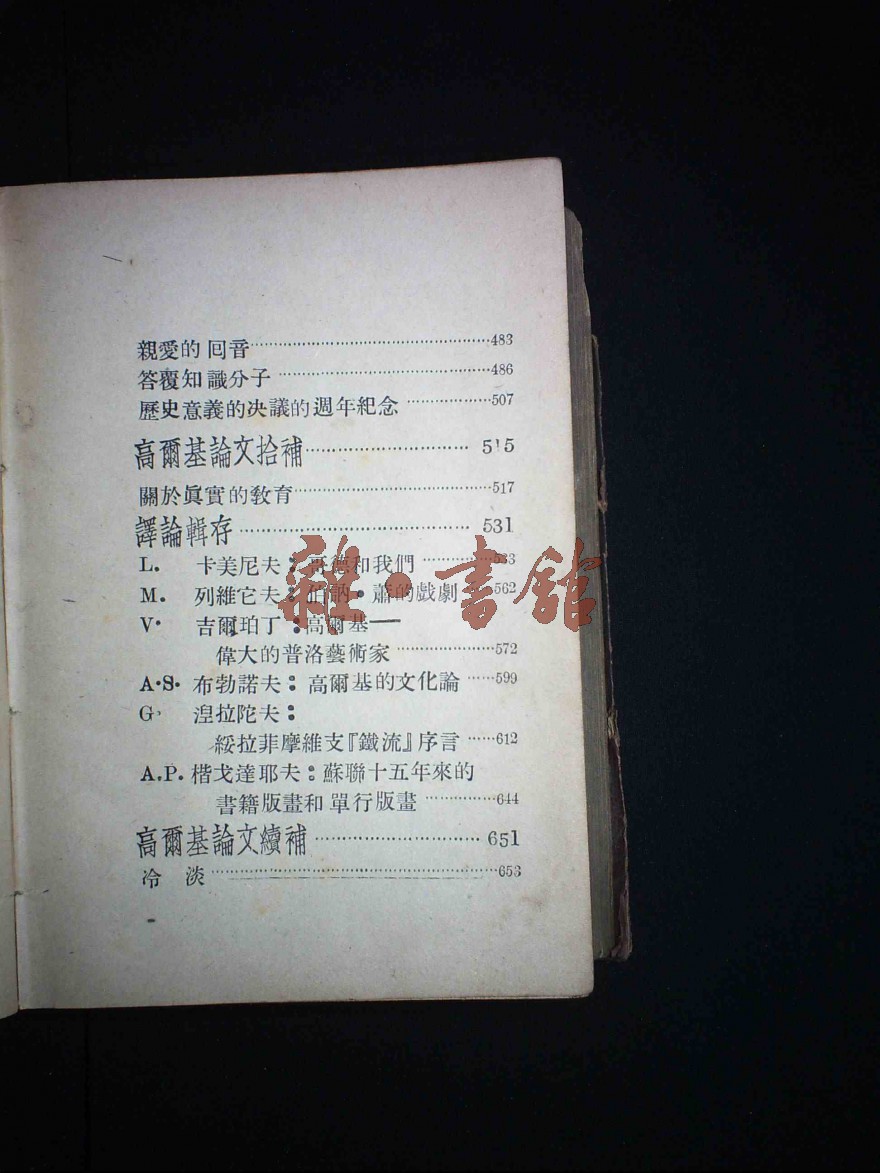 親愛的回音……483
答覆知識分子……486
歷史意義的决議的週年紀念……507
高爾基論文拾補……515
關於眞實的敎育……517
譯論輯存……531
L. 卡美尼夫：哥德和我們……533
M. 列維它夫：伯訥·蕭的戲劇……562
V· 吉爾珀丁：高爾基——
偉大的普洛藝術家……572
A·S· 布勃諾夫：高爾基的文化論……599
G, 湼拉陀夫：
綏拉菲摩維支『鐵流』序言……612
A.P. 楷戈達耶夫：蘇聯十五年來的
書籍版畫和單行版畫……644
高爾基論文續補……651
冷 淡……653
雜·書館